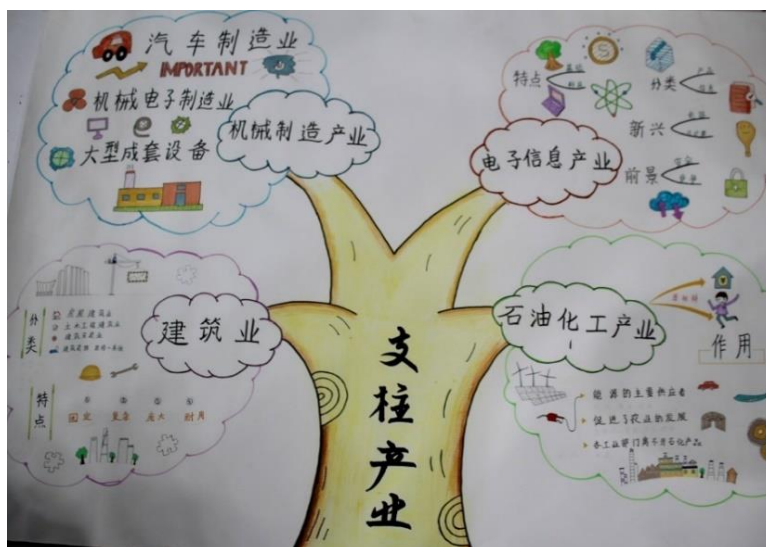 汽车制造业
IMPORTANT
机械电子制造业
大型成套设备
机械制造产业
特点
分类
新兴
前景
电子信息产业
分类
房屋建筑业
土木工程建筑业
建筑安装业
建筑业
特点
固定
复杂
庞大
耐用
石油化工产业
作用
能源的主要供应者
促进了农业的发展
各工业部门离不开石化产品
支柱产业